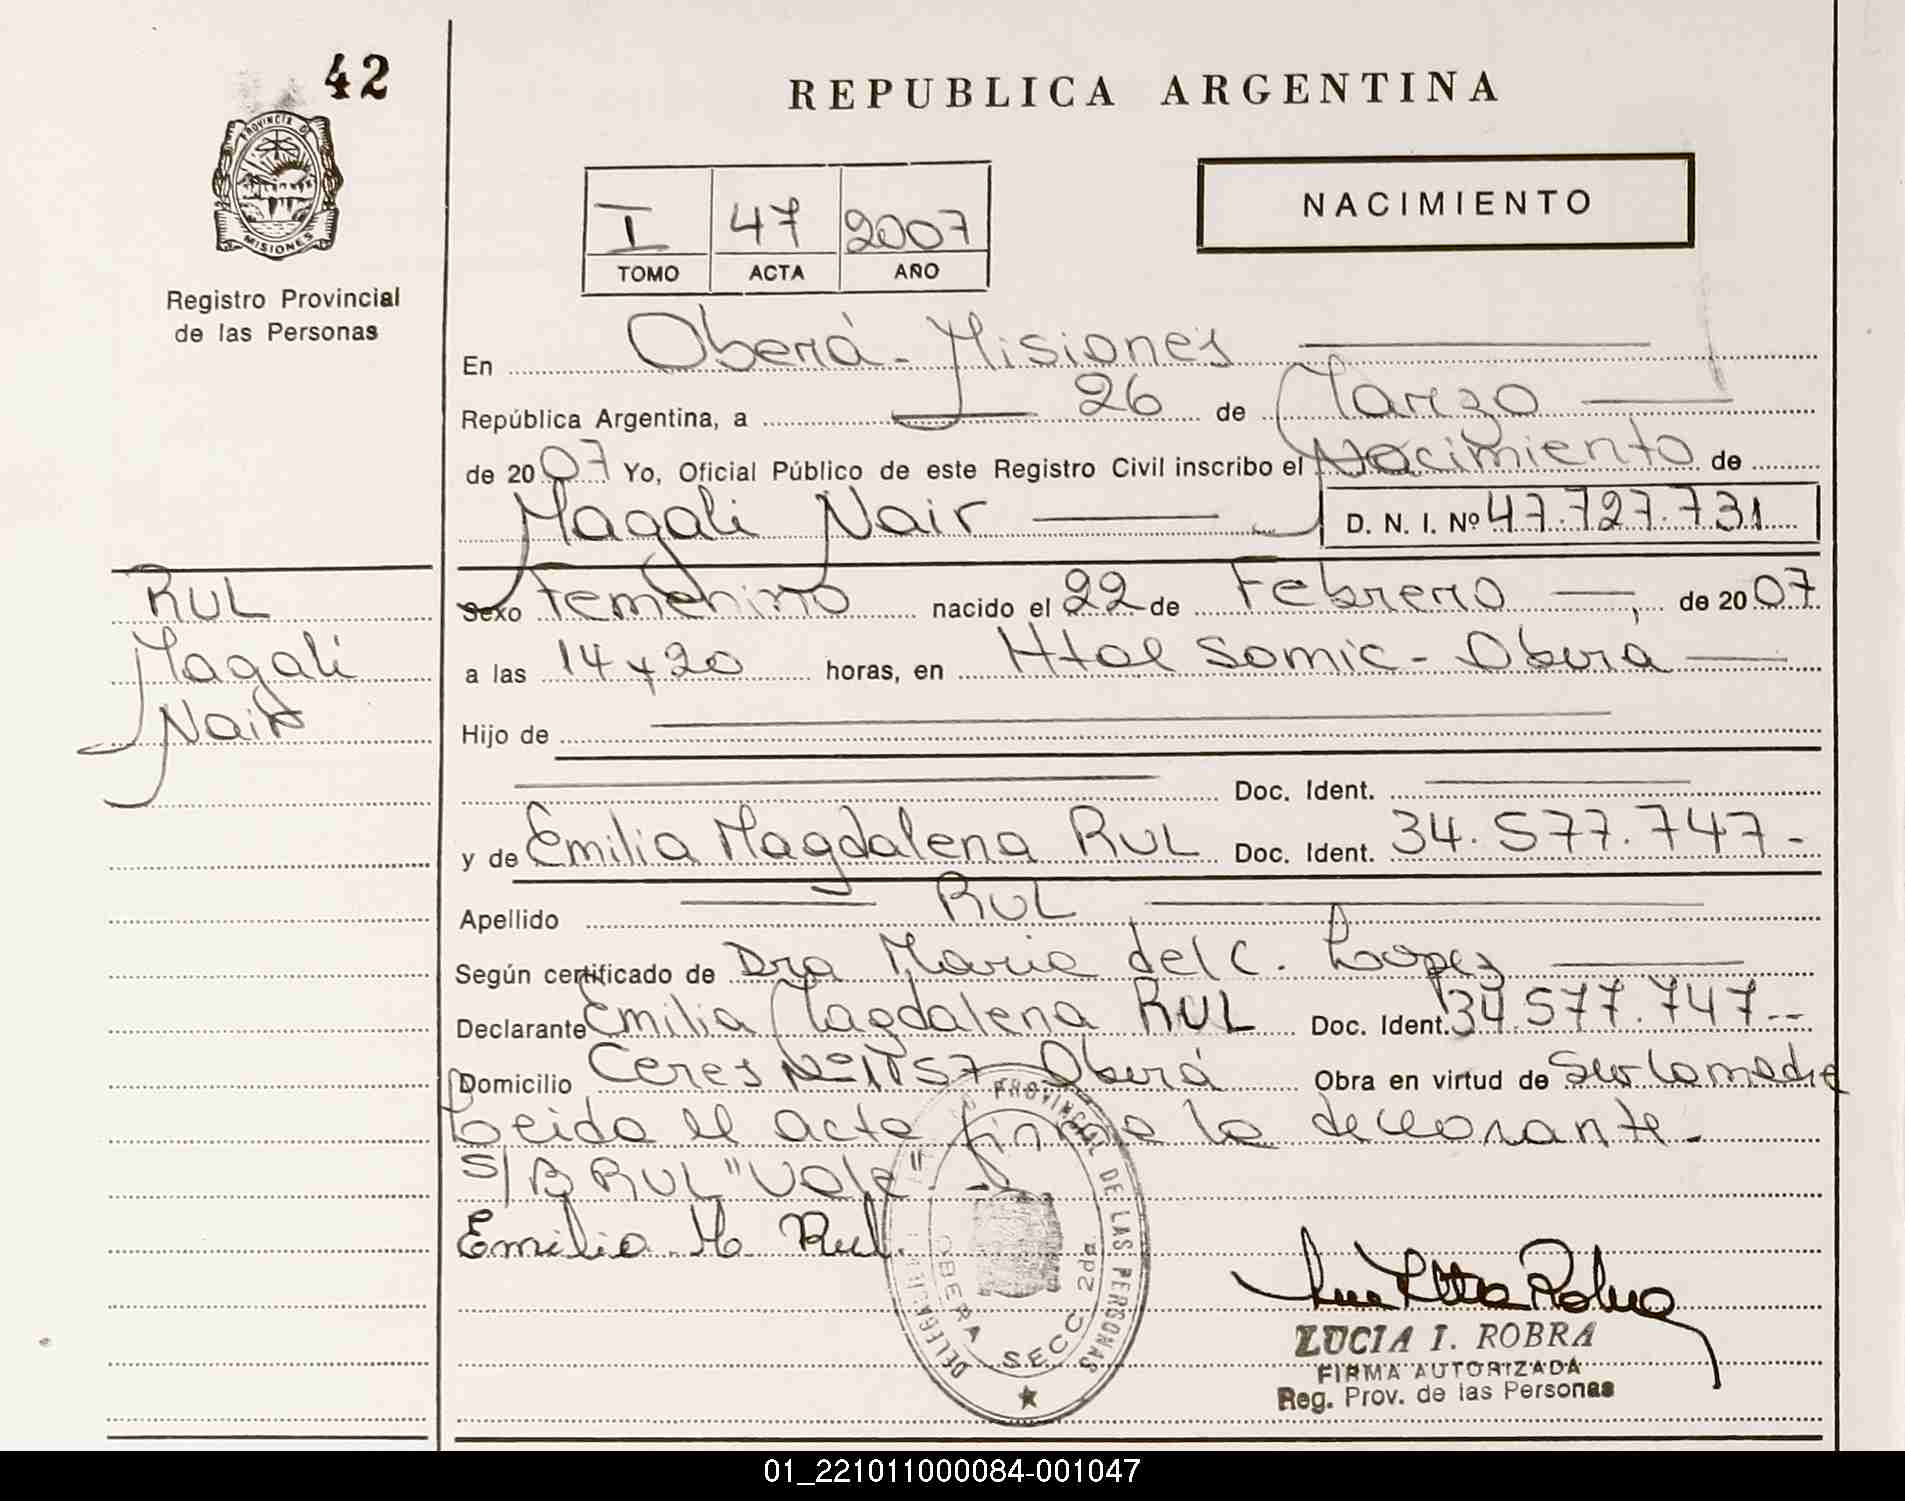 42
PROVINCIA DE
MISIONES
Registro Provincial
de las Personas
REPUBLICA ARGENTINA
I 47 2007
TOMO ACTA AÑO
NACIMIENTO
En Oberá - Misiones
República Argentina, a 26 de Marzo
de 2007 Yo, Oficial Público de este Registro Civil inscribo el Nacimiento de
Magali Nair D. N. I. Nº 47.727.731
RUL
Magali
Nair
Sexo Femenino nacido el 22 de Febrero, de 2007
a las 14 y 20 horas, en Htal Samic - Oberá
Hijo de
Doc. Ident.
y de Emilia Magdalena RUL Doc. Ident. 34.577.747-
Apellido RUL
Según certificado de Dra Maria del C. Lopez
Declarante Emilia Magdalena RUL Doc. Ident. 34.577.747--
Domicilio Ceres Nº 1157 Oberá Obra en virtud de Ser la madre
Leida el acta firma la declarante-
S/B RUL "Vale"-
Emilia M Rul.
PROVINCIAL DE LAS PERSONAS
OBERA SECC. 2da
LUCIA I. ROBRA
FIRMA AUTORIZADA
Reg. Prov. de las Personas
01_221011000084-001047